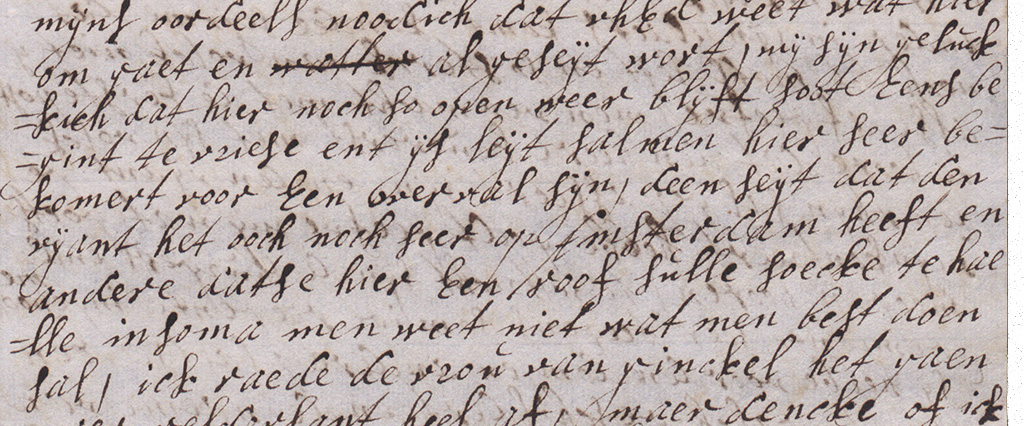 mijns oordeels noodich dat uhEd weet wat hier
om gaet en watter al geseijt wort, mij sijn geluck
=kich dat hier noch so open weer blijft soot Eens be
=gint te vriese ent ijs leijt salmen hier seer be=
komert voor Een overval sijn, deen seijt dat den
vijant het ooch noch seer op Amsterdam heeft en
andere datse hier Een roof sulle soecke te hae
=lle insoma men weet niet wat men best doen
sal, ick raede de vrou van ginckel het gaen
gelderlant heel af, maer dencke of ick